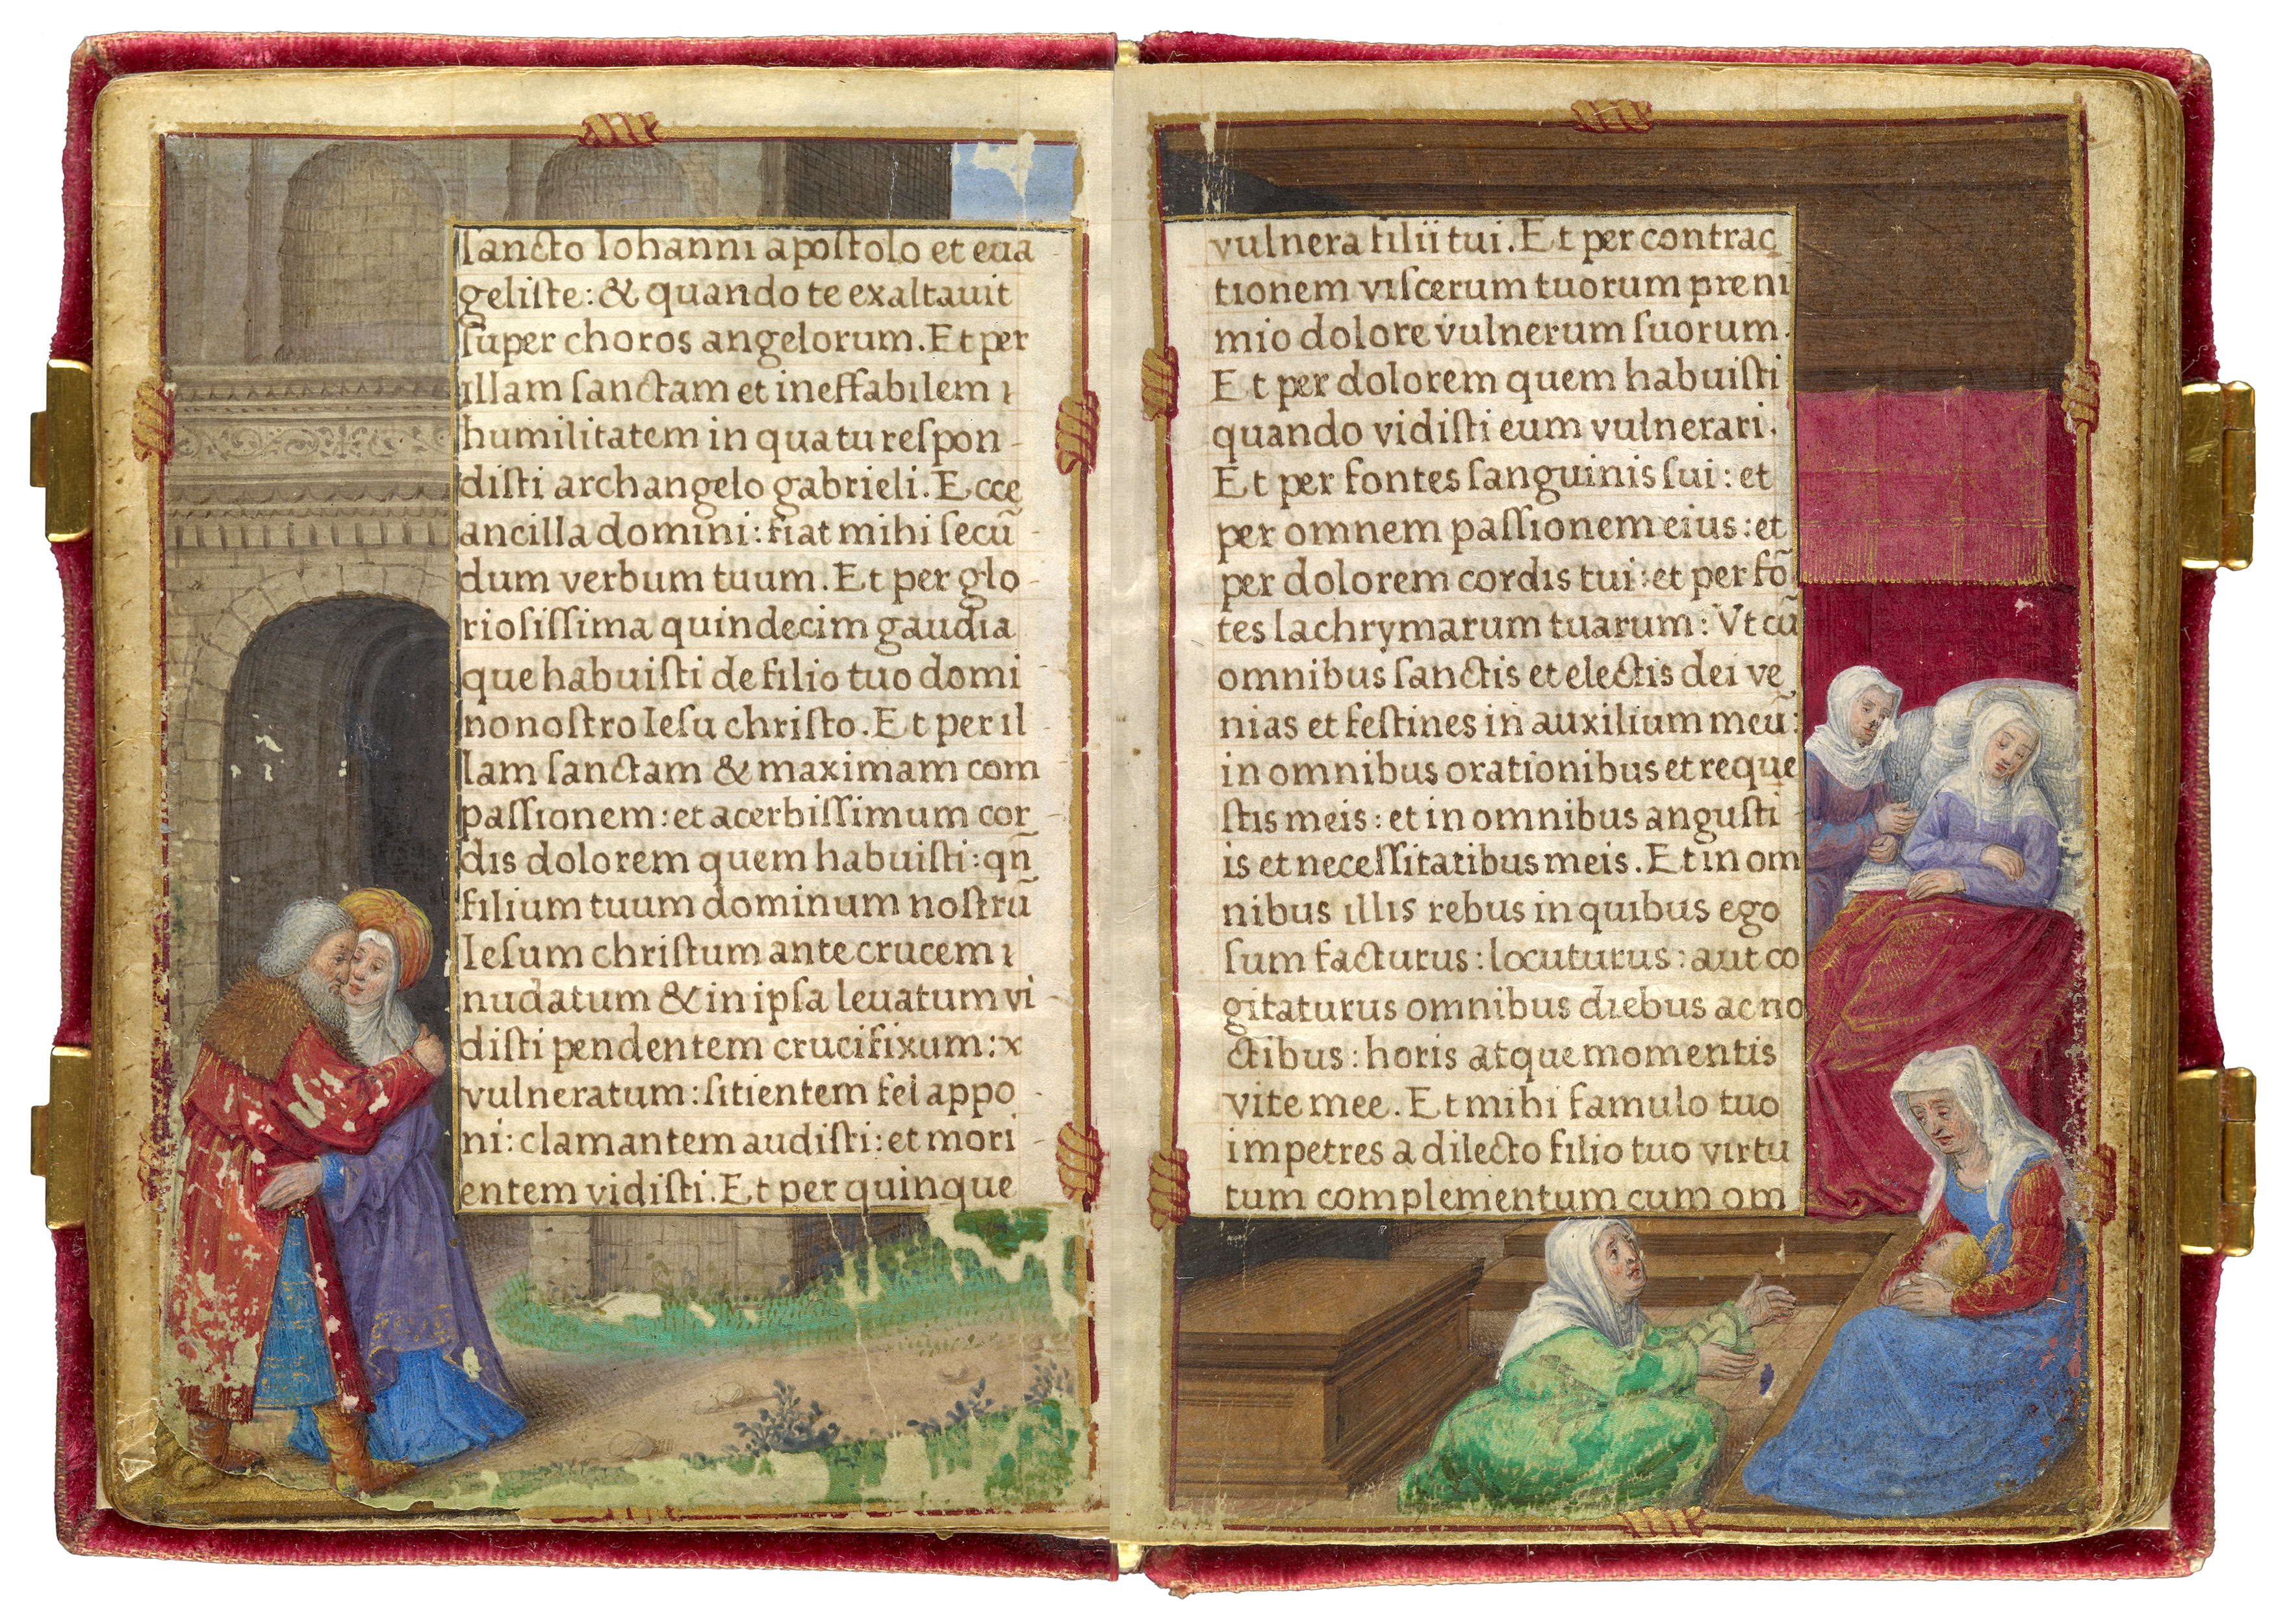 sancto Iohanni apostolo et eua
geliste: & quando te exaltauit
super choros angelorum. Et per
illam sanctam et ineffabilem ı
humilitatem in qua tu respon-
disti archangelo gabrieli. Ecce
ancilla domini: fiat mihi secū-
dum verbum tuum. Et per glo-
riosissima quindecim gaudia
que habuisti de filio tuo domi
no nostro Iesu christo. Et per il
lam sanctam & maximam com
passionem: et acerbissimum cor
dis dolorem quem habuisti: qn̄
filium tuum dominum nostrū
Iesum christum ante crucem ı
nudatum & in ipsa leuatum vi
disti pendentem crucifixum: x
vulneratum: sitientem fel appo
ni: clamantem audisti: et mori-
entem vidisti. Et per quinque
vulnera filii tui. Et per contrac
tionem viscerum tuorum preni
mio dolore vulnerum suorum.
Et per dolorem quem habuisti
quando vidisti eum vulnerari.
Et per fontes sanguinis sui: et
per omnem passionem eius: et
per dolorem cordis tui: et per fō
tes lachrymarum tuarum: Vt cū
omnibus sanctis et electis dei ve
nias et festines in auxilium meū:
in omnibus orationibus et reque
stis meis: et in omnibus angusti
is et necessitatibus meis. Et in om
nibus illis rebus in quibus ego
sum facturus: locuturus: aut co
gitaturus omnibus diebus ac no
ctibus: horis atque momentis
vite mee. Et mihi famulo tuo
impetres a dilecto filio tuo virtu
tum complementum cum om